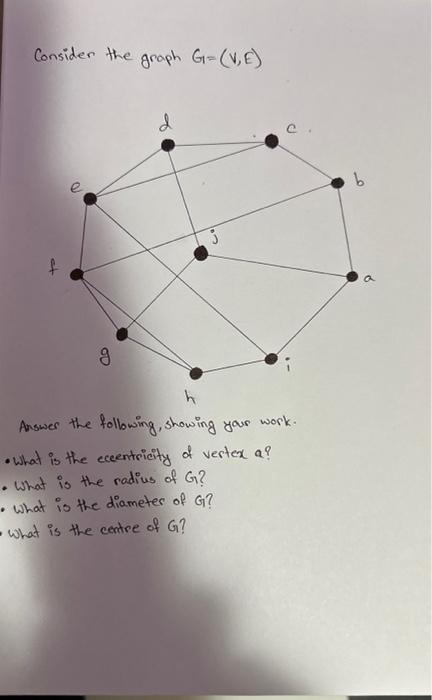 Consider the graph G=(V,E)
d
c
e
b
j
f
a
g
i
h
Answer the following, showing your work.
• What is the eccentricity of vertex a?
• What is the radius of G?
• What is the diameter of G?
• What is the centre of G?